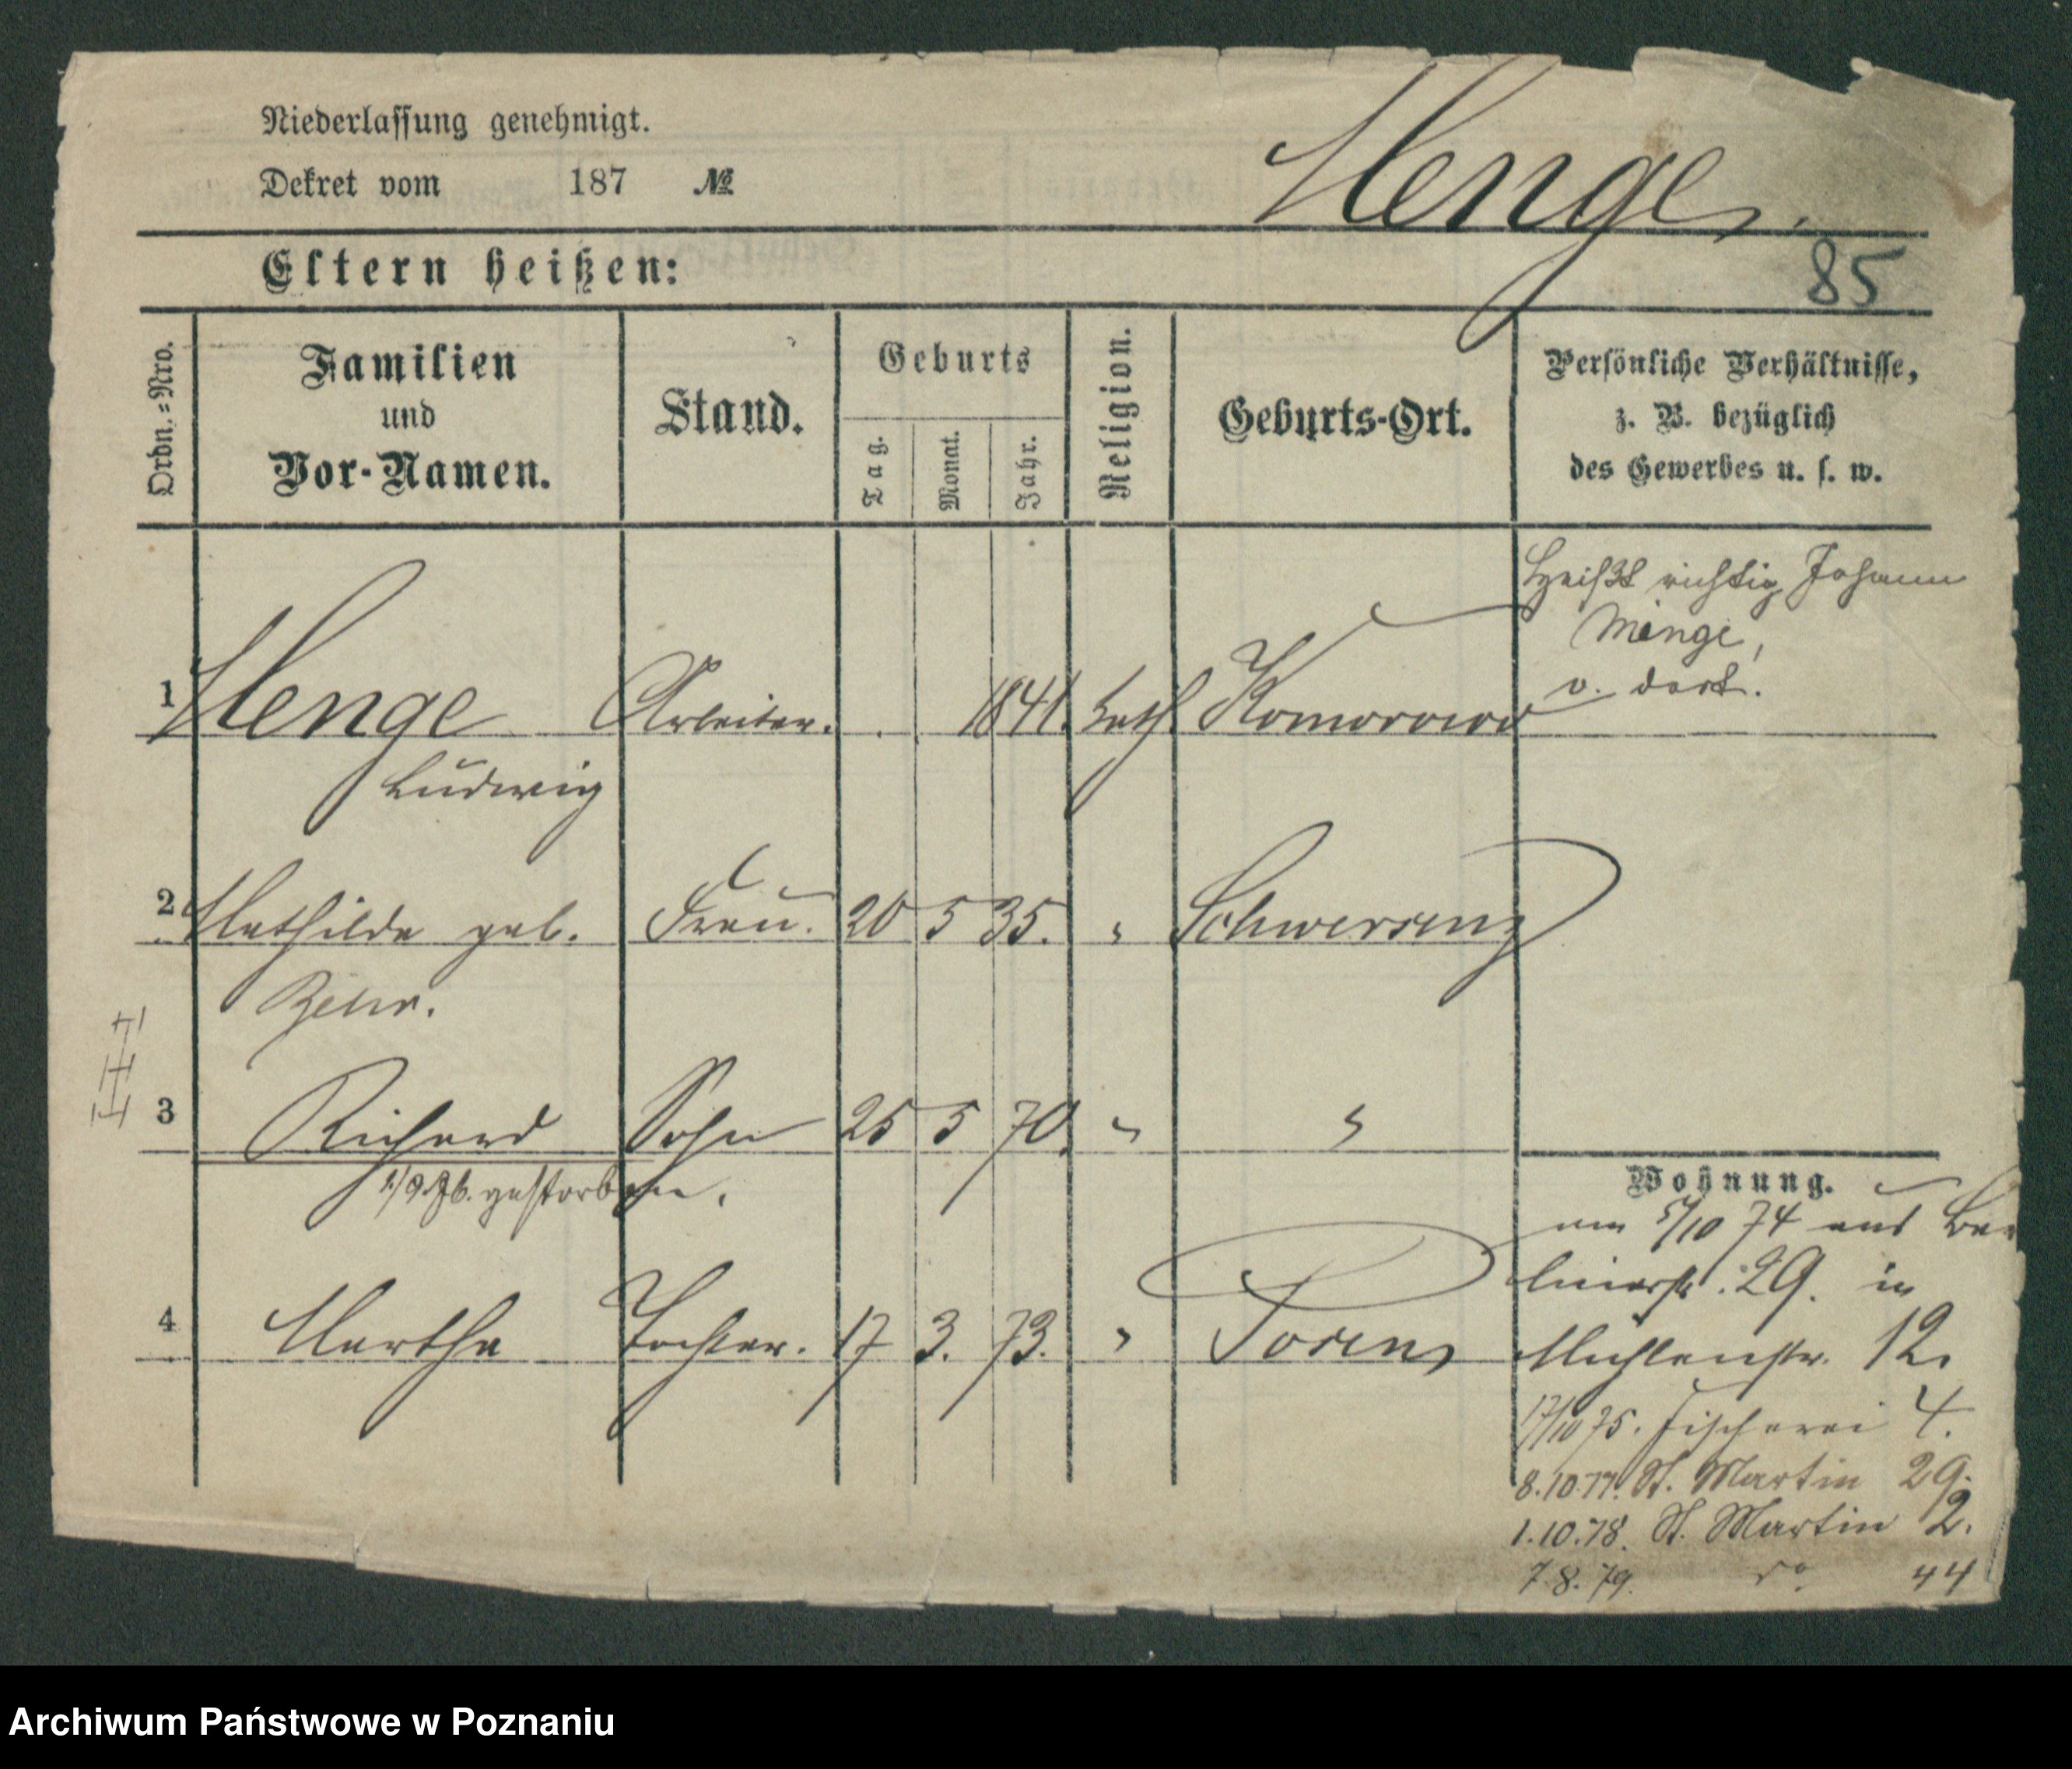 Niederlassung genehmigt.
Dekret vom 187 №
Menge.
85
Eltern heißen:
Ordn.=Nro.
Familien
und
Vor-Namen.
Stand.
Geburts
Tag.
Monat.
Jahr.
Religion.
Geburts-Ort.
Persönliche Verhältnisse,
z. B. bezüglich
des Gewerbes u. s. w.
Heißt richtig Johann
Menge,
v. dort.
1 Menge Arbeiter. 1841. kath. Komorowo
Ludwig
2 Mathilde geb. Frau. 20 5 35. " Schwersenz
3 Richard Sohn 25 5 70. " "
1/9 76. gestorben.
4 Martha Tochter. 17 3. 73. " Posen
Wohnung.
um 5/10 74 aus Ber
linerstr. 29. in
Mühlenstr. 12.
17/10 75. Fischerei 4.
8.10.77. St. Martin 29.
1.10.78. St. Martin 2.
7.8.79. do 44
Archiwum Państwowe w Poznaniu